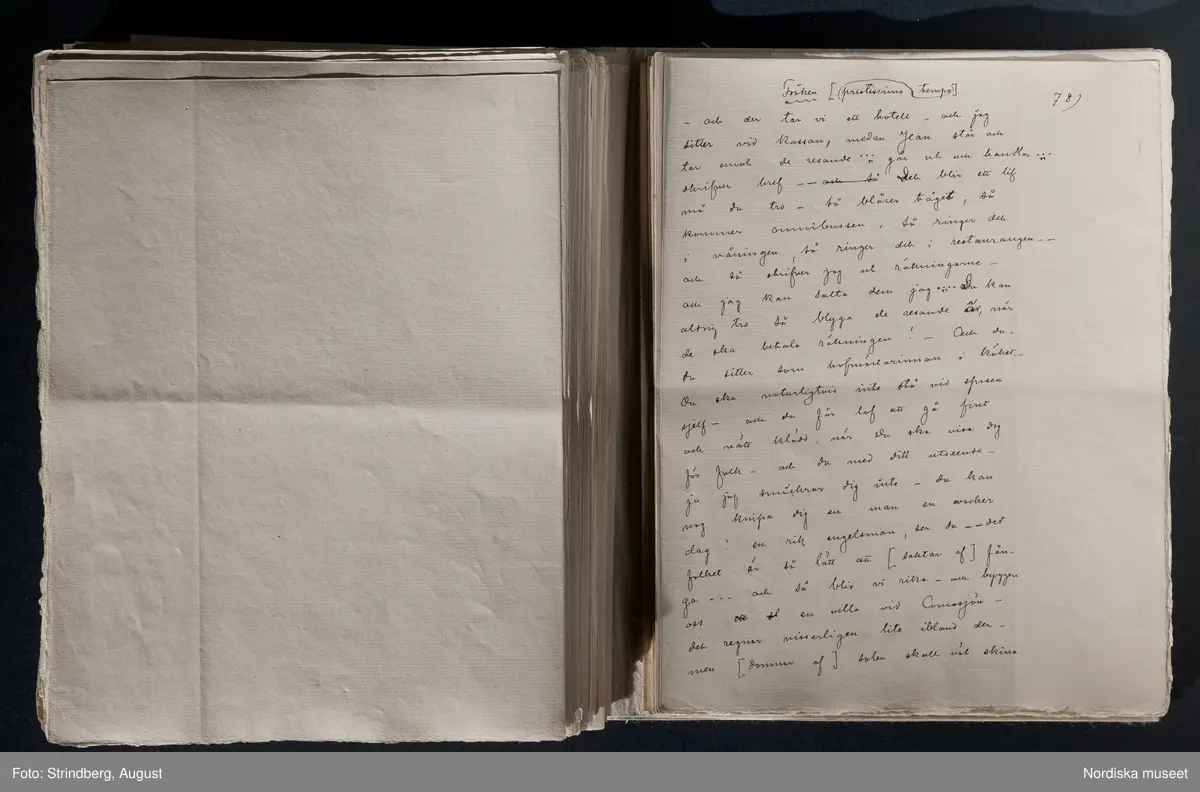 Fröken [(prestissimo tempo]
78)
- och der tar vi ett hotell - och jag
sitter vid kassan, medan Jean står och
tar emot de resande ... går ut och handlar ...
skrifver bref -- och så Det blir ett lif
må du tro - så blåser tåget, så
kommer omnibussen, så ringer det
i våningen, så ringer det i restaurangen --
och så skrifver jag ut räkningarne -
och jag kan salta dem jag ... Du kan
aldrig tro så blyga de resande är, när
de ska betala räkningen! - Och du -
du sitter som hofmästarinnan i köket. -
Du ska naturligtvis inte stå vid spisen
sjelf - och du får lof att gå fint
och nätt klädd, när du ska visa dig
för folk - och du med ditt utseende -
ja jag smickrar dig inte - du kan
nog knipa dig en man en vacker
dag! en rik engelsman, ser du -- det
folket är så lätt att [saktar af] fån-
ga --- och så blir vi rika - och bygger
oss en villa vid Comosjön -
det regnar visserligen lite ibland der -
men [domnar af] solen skall väl skina
Foto: Strindberg, August
Nordiska museet